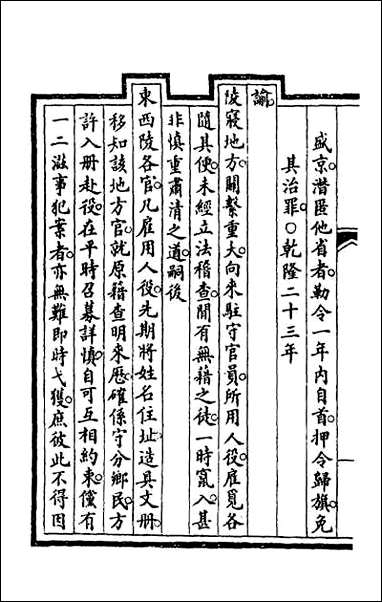 盛京潛匿他省者勒令一年内自首押令歸旗免
其治罪○乾隆二十三年
諭
陵寢地方關繫重大向來駐守官員所用人役雇覓各
隨其便未經立法稽查閒有無籍之徒一時竄入甚
非慎重肅清之道嗣後
東西陵各官凡雇用人役先期將姓名住址造具文册
移知該地方官就原籍查明來歷確係守分鄉民方
許入册赴役在平時召募詳慎自可互相約束儻有
一二滋事犯案者亦無難即時弋獲庶彼此不得因